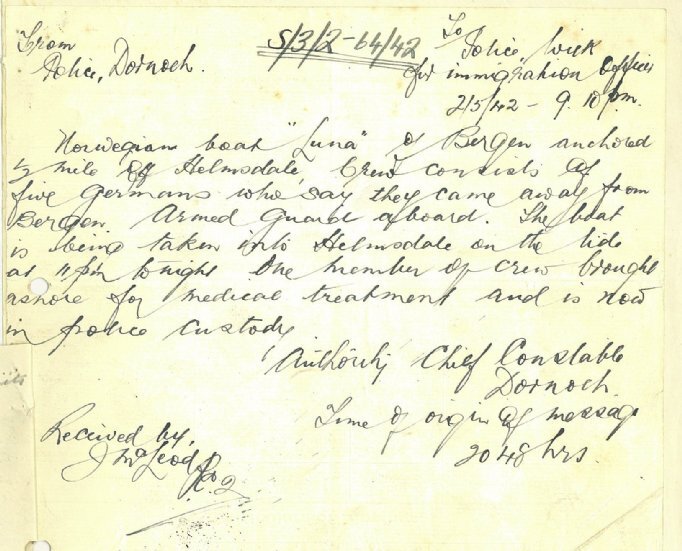 From
Police, Dornoch.
S/3/2-64/42
To
Police Wick
for immigration officer
2/5/42 - 9.10pm.
Norwegian boat "Luna" of Bergen anchored
1/2 mile off Helmsdale, Crew consists of
five Germans who say they came away from
Bergen. Armed guard aboard. The boat
is being taken into Helmsdale on the tide
at 11pm tonight One member of crew brought
ashore for medical treatment and is now
in police custody
Authority Chief Constable
Dornoch.
Time of origin of message
2048 hrs.
Received by,
J McLeod